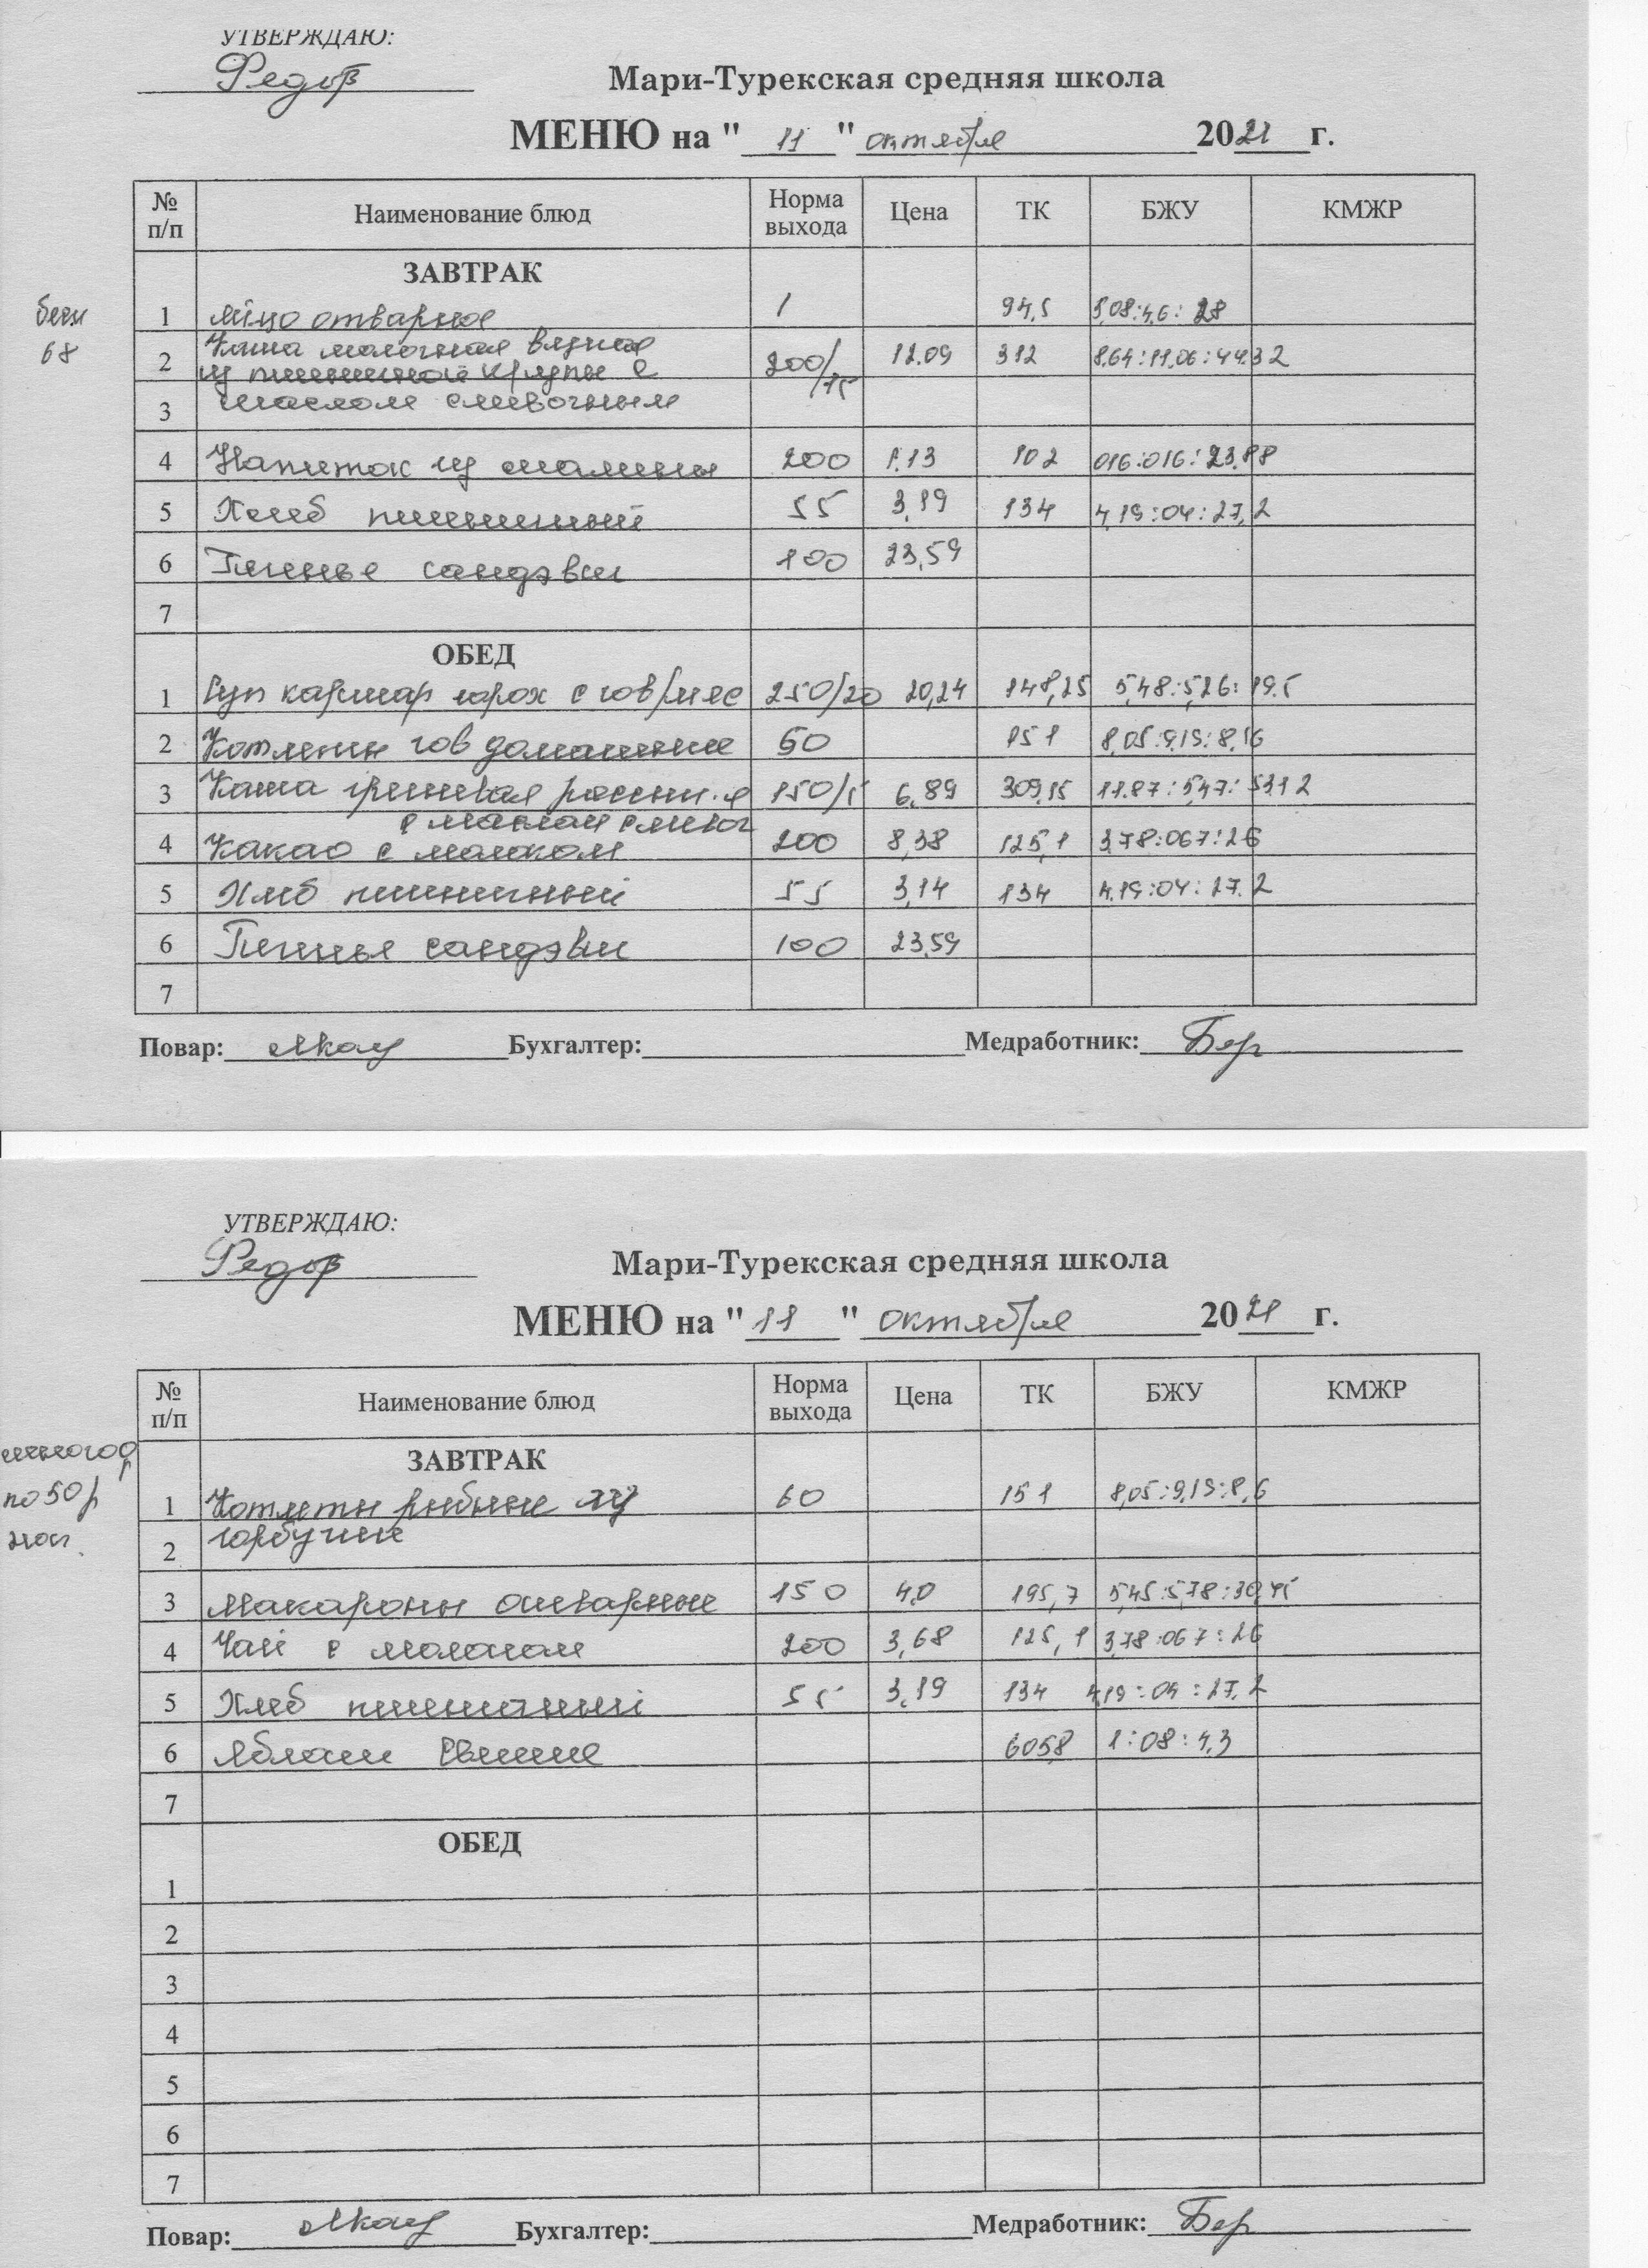 УТВЕРЖДАЮ:
Мари-Турекская средняя школа
МЕНЮ на " 11 " октября 2021 г.
№ п/п Наименование блюд Норма выхода Цена ТК БЖУ КМЖР
ЗАВТРАК
1 Яйцо отварное 1 94,5
68
2 Каша молочная вязкая 200/15 12.09 312 8,64:11,06:44.32
из пшеничной крупы с
3 маслом сливочным
4 Напиток из малины 200 1.13 102 016:016:23.88
5 Хлеб пшеничный 55 3,19 134 4,19:04:27,2
6 Печенье сандэвил 100 23,59
7
ОБЕД
1 Суп картоф горох с гов/мяс 250/20 20,24 148,25 5,48:5,26:19.5
2 Котлеты гов домашние 60 151 8,05:9,19:8,16
3 Каша гречневая 150/5 6,89 309,15 11.87:5,47:5312
с маслом сливоч
4 Какао с молоком 200 8,38 125,1 3,78:067:26
5 Хлеб пшеничный 55 3,14 134 4.19:04:27.2
6 Печенье сандэвил 100 23,59
7
Повар: Бухгалтер: Медработник:
УТВЕРЖДАЮ:
Мари-Турекская средняя школа
МЕНЮ на " 11 " октября 2021 г.
№ п/п Наименование блюд Норма выхода Цена ТК БЖУ КМЖР
ЗАВТРАК
по 50 р
1 Котлеты рыбные из 60 151 8,05:9,19:8,6
2 горбуши
3 Макароны отварные 150 4,0 195,7 5,45:5,78:30,45
4 Чай с молоком 200 3,68 125,1 3,78:067:26
5 Хлеб пшеничный 55 3,19 134 4,19:04:27,2
6 Яблоки свежие 605,8 1:08:4,3
7
ОБЕД
1
2
3
4
5
6
7
Повар: Бухгалтер: Медработник: